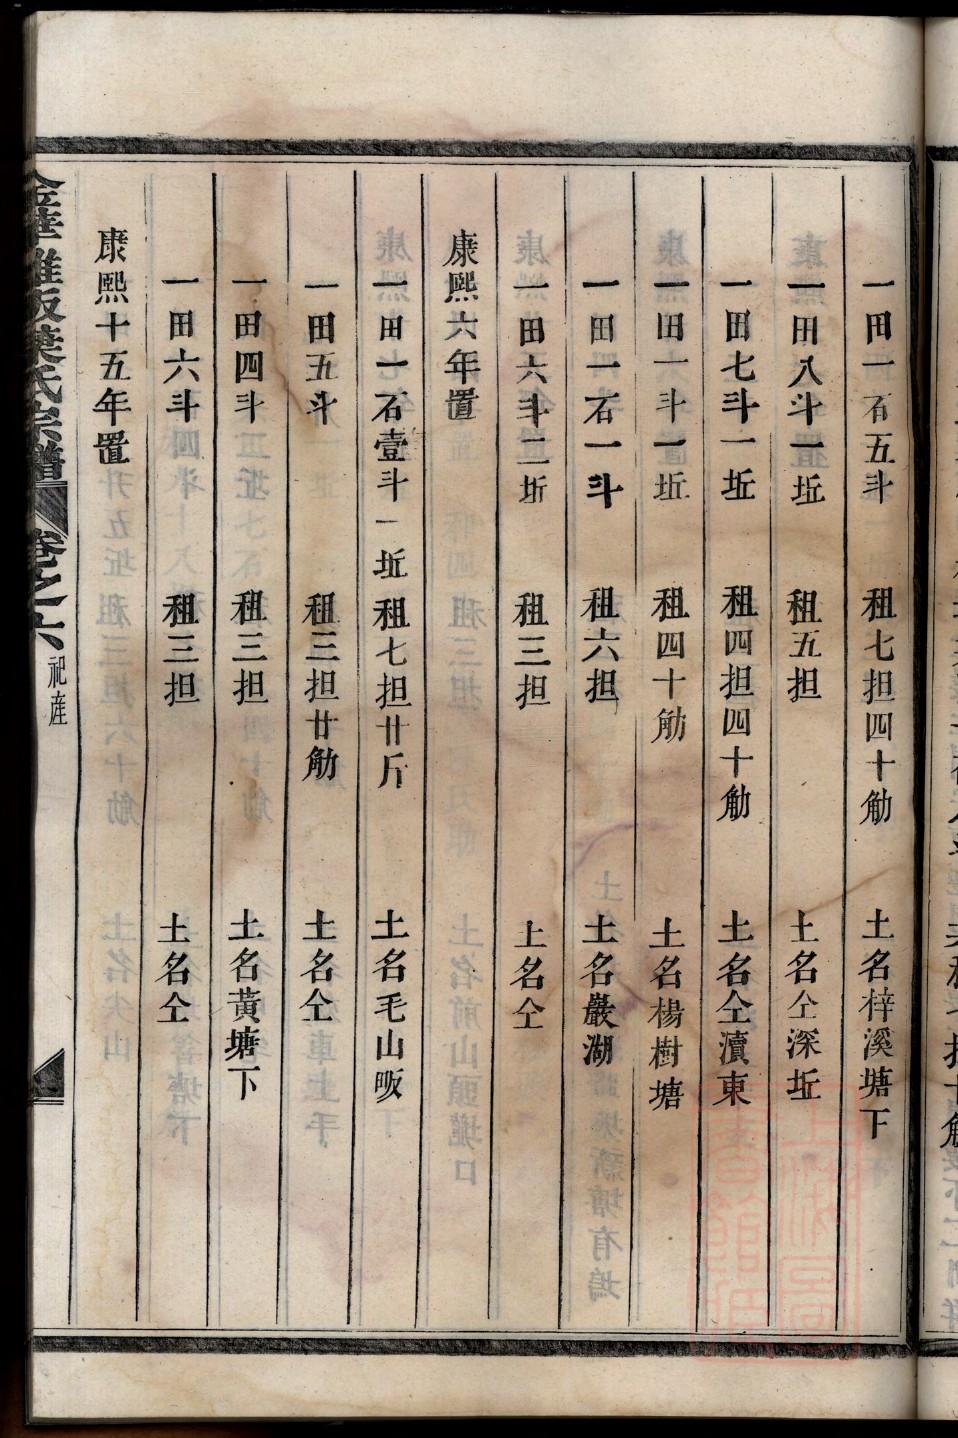 一田一石五斗 租七担四十觔 土名梓溪塘下
一田八斗一坵 租五担 土名仝深坵
一田七斗一坵 租四担四十觔 土名仝瀆東
一田一斗一坵 租四十觔 土名楊樹塘
一田一石一斗 租六担 土名嚴湖
一田六斗二坵 租三担 土名仝
康熙六年置
一田一石壹斗一坵 租七担廿斤 土名毛山畈
一田五斗 租三担廿觔 土名仝
一田四斗 租三担 土名黃塘下
一田六斗 租三担 土名仝
康熙十五年置
葉氏宗譜 卷之六 祀產